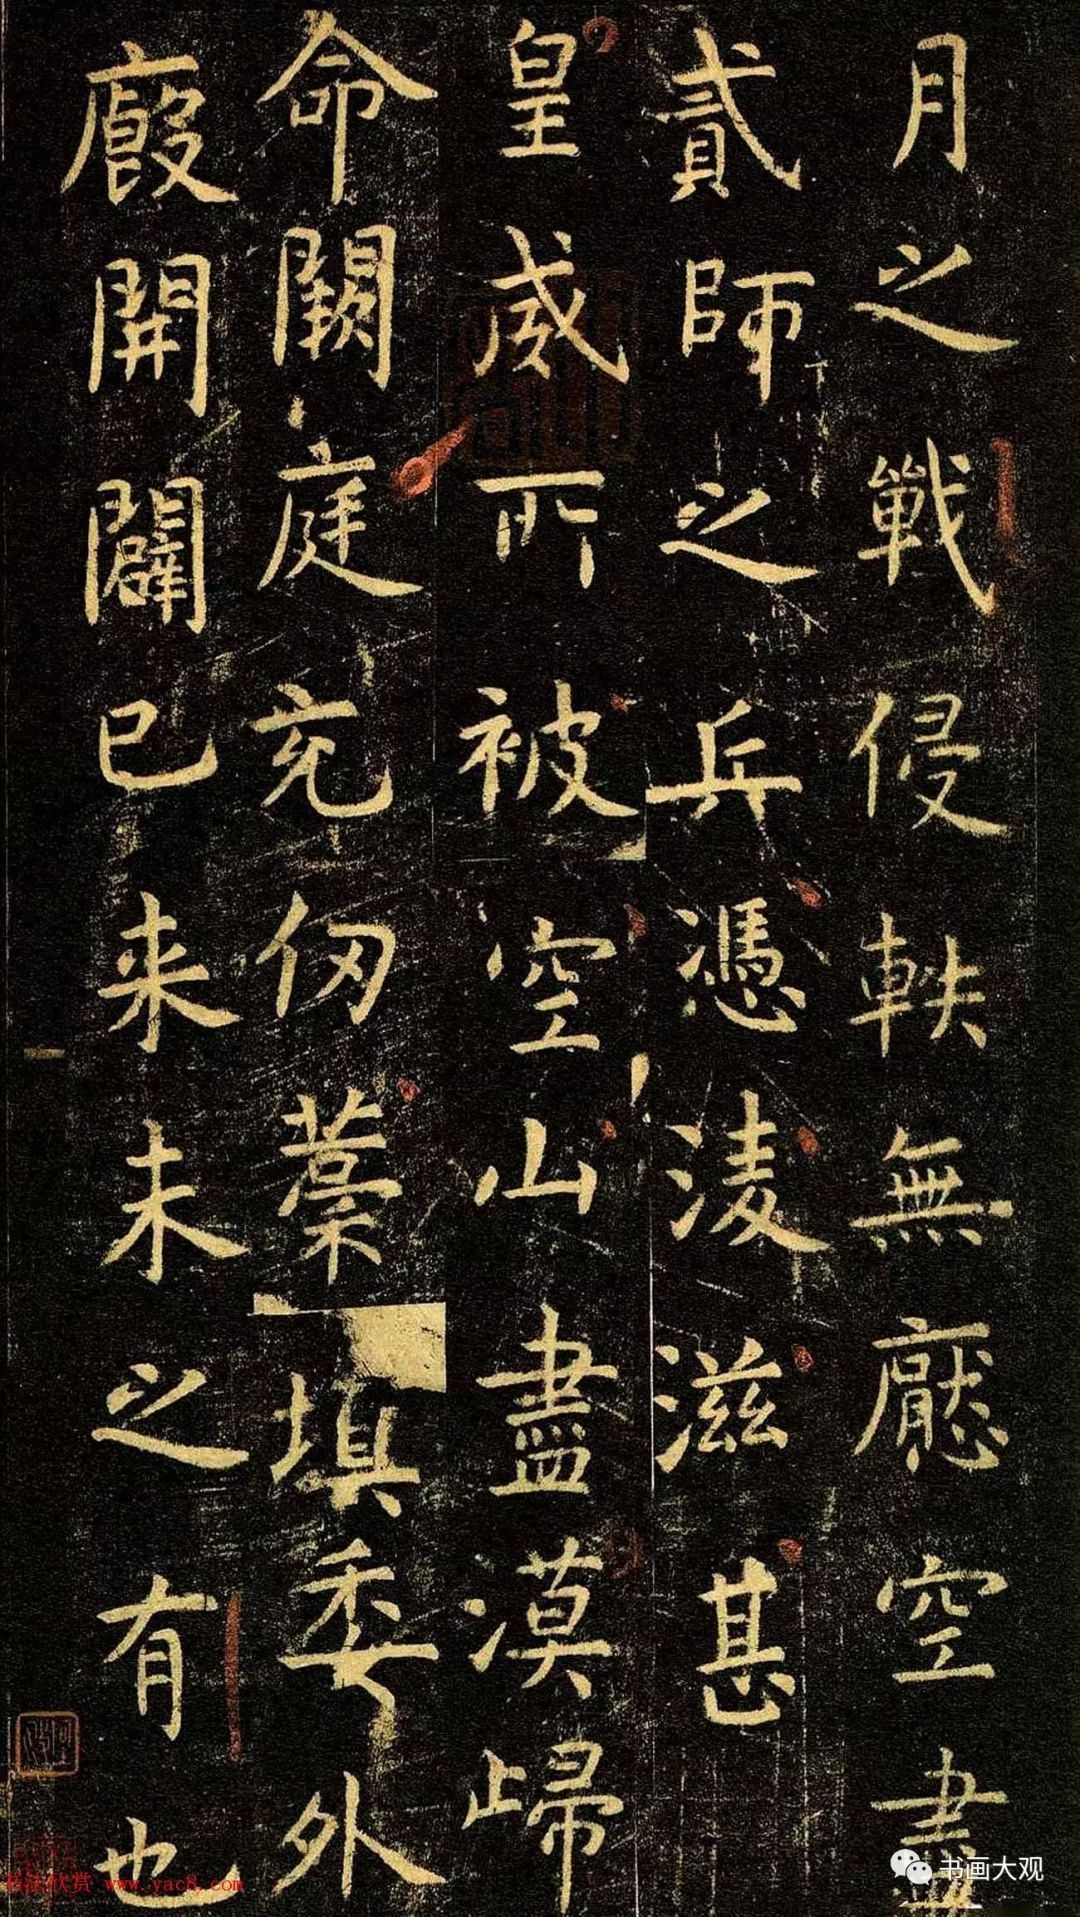 月之戰侵軼無厭空盡
貳師之兵憑凌滋甚
皇威所被空山盡漠歸
命闕庭充仞藁填委外
廄開闢已来未之有也
书画大观
书法欣赏 www.yac8.com